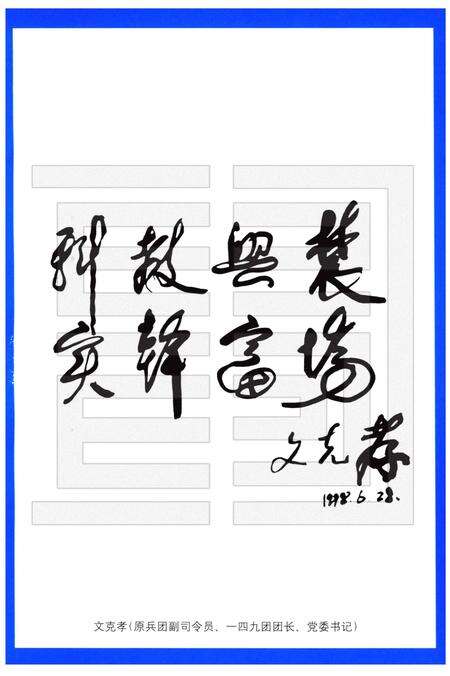 科教兴农
实干富场
文克孝
1998.6.28.
文克孝(原兵团副司令员、一四九团团长、党委书记)